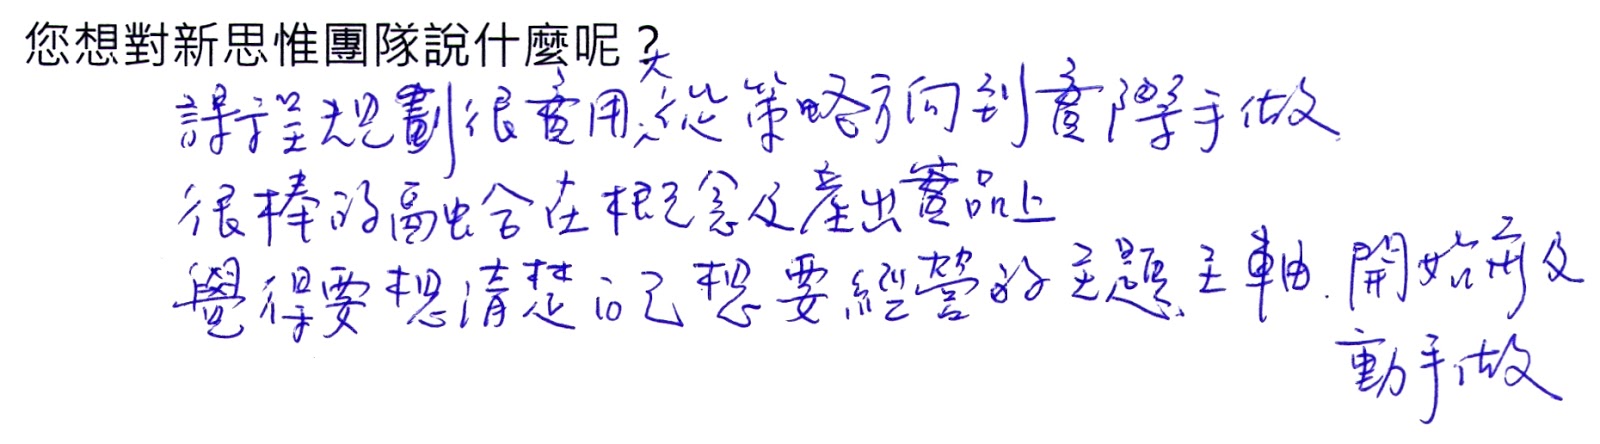 您想對新思惟團隊說什麼呢？
課程規劃很實用，從策略方向到實際手做
很棒的融合在概念及產出實品上
覺得要想清楚自己想要經營的主題、主軸，開始府及
動手做